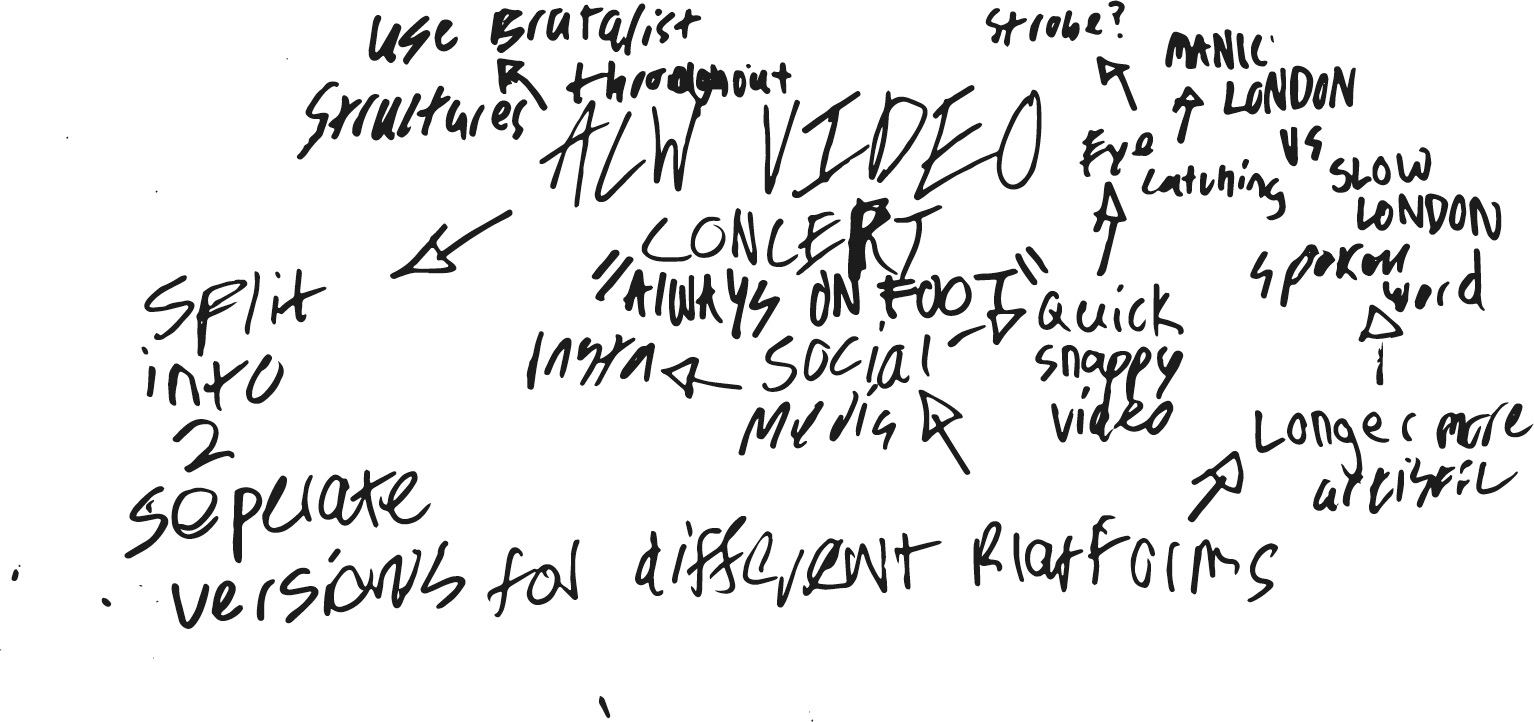 use Brutalist
structures throughout
ALW VIDEO
CONCERT
"AlWAYS ON FOOT"
Split
into
2
seperate
versions for different Platforms
social
Media
Insta
Quick
snappy
video
Eye
catching
strobe?
MANIC
LONDON
VS
SLOW
LONDON
Longer more
artistic
spoken
word